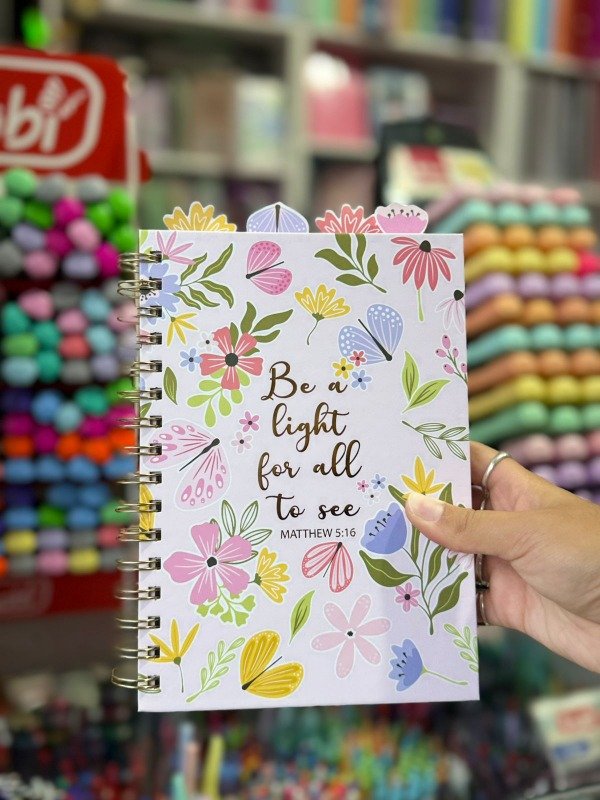 Be a
light
for all
to see
MATTHEW 5:16